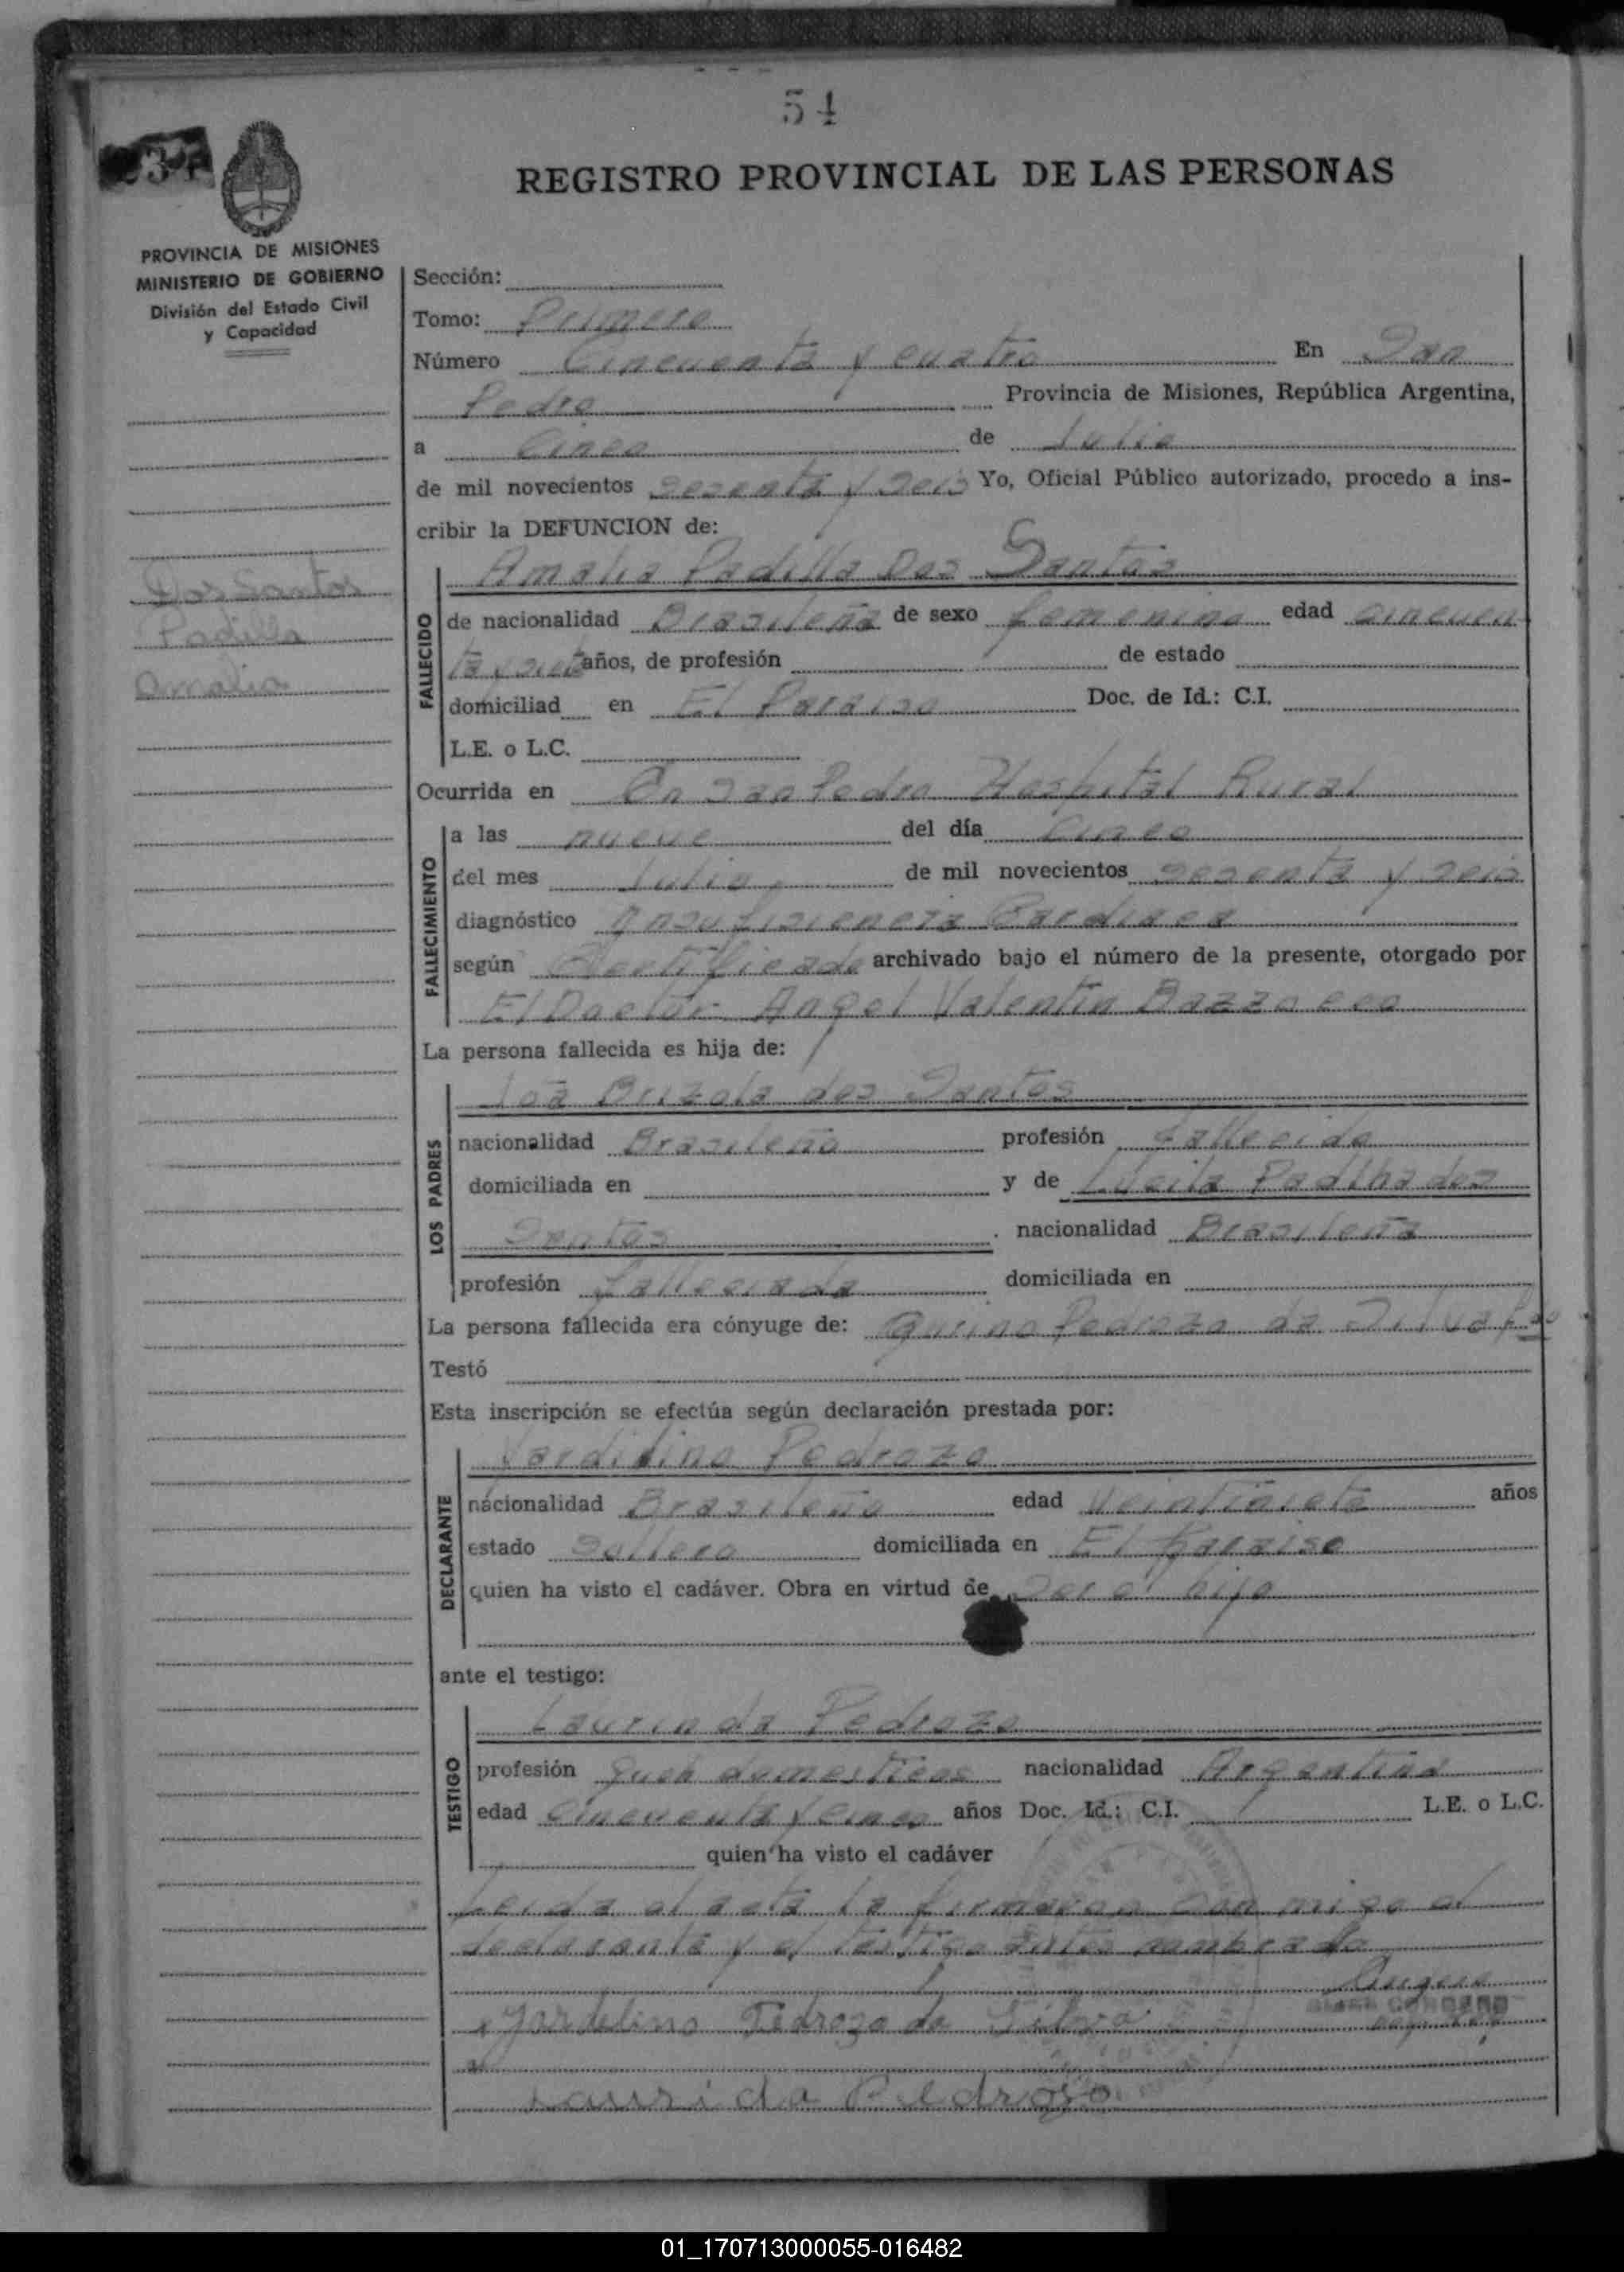 54
REGISTRO PROVINCIAL DE LAS PERSONAS
PROVINCIA DE MISIONES
MINISTERIO DE GOBIERNO
División del Estado Civil
y Capacidad
Dos Santos
Padilla
Amalia
Sección:
Tomo: Primero
Número Cincuenta y cuatro En San
Pedro Provincia de Misiones, República Argentina,
a Cinco de Julio
de mil novecientos sesenta y seis Yo, Oficial Público autorizado, procedo a ins-
cribir la DEFUNCION de:
FALLECIDO
Amalia Padilla Dos Santos
de nacionalidad Brasileña de sexo femenino edad cincuen
ta y siete años, de profesión de estado
domiciliad en El Paraiso Doc. de Id.: C.I.
L.E. o L.C.
Ocurrida en En San Pedro Hospital Rural
FALLECIMIENTO
a las nueve del día Cinco
del mes Julio de mil novecientos sesenta y seis
diagnóstico Insuficiencia Cardiaca
según Certificado archivado bajo el número de la presente, otorgado por
El Doctor Angel Valentin
La persona fallecida es hija de:
LOS PADRES
Brizola dos Santos
nacionalidad Brasileño profesión Fallecido
domiciliada en y de dos
Santos nacionalidad Brasileña
profesión domiciliada en
La persona fallecida era cónyuge de: Pedrozo da Silva
Testó
Esta inscripción se efectúa según declaración prestada por:
DECLARANTE
Pedrozo
nacionalidad Brasileño edad Veintisiete años
estado Soltero domiciliada en El Paraiso
quien ha visto el cadáver. Obra en virtud de Ser el hijo
ante el testigo:
TESTIGO
Laurinda Pedrozo
profesión Queh domesticos nacionalidad Argentina
edad Cincuenta y cinco años Doc. Id.: C.I. L.E. o L.C.
quien ha visto el cadáver
Leida el acta la firmaron con migo el
declarante y el testigo antes nombrado
Jardelino Pedrozo da Silva
Laurida Pedrozo
01_170713000055-016482